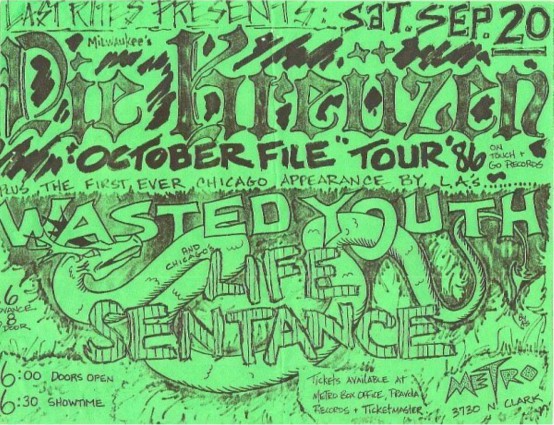 LAST RITES PRESENTS:
SAT. SEP. 20
Milwaukee's
Die Kreüzen
"OCTOBER FILE" TOUR '86
ON
TOUCH +
GO RECORDS
PLUS THE FIRST EVER CHICAGO APPEARANCE BY L.A.'S..........
WASTED YOUTH
AND
CHICAGO'S
LIFE
SENTANCE
6:00 DOORS OPEN
6:30 SHOWTIME
TICKETS AVAILABLE AT
METRO BOX OFFICE,
RECORDS + TICKETMASTER.
METRO
3730 N. CLARK